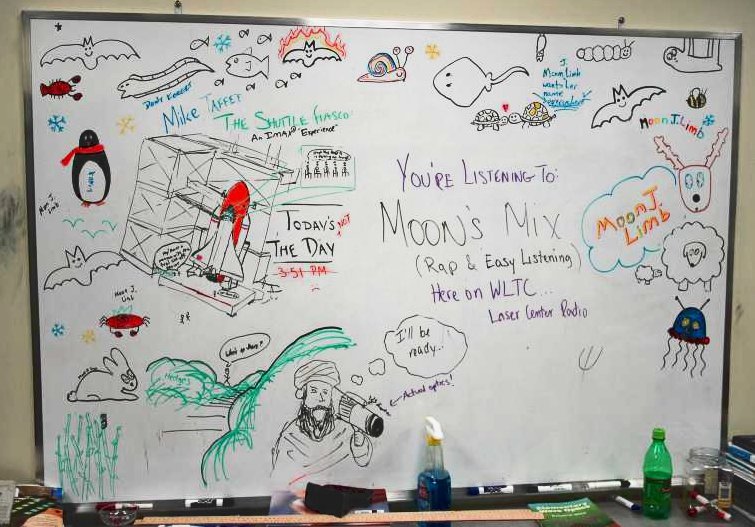 DON'T FORGET
MIKE TAFFET
THE SHUTTLE FIASCO:
An IMAX® 'Experience'
J
Moon Limb
wants her
name
remembered
MOON J. Limb
Moon J.
Limb
TODAY'S NOT
THE DAY
3:51 PM
Moon J.
Limb
MOON J.
LIMB
YOU'RE LISTENING TO:
MOON'S MIX
(Rap & Easy Listening)
Here on WLTC...
Laser Center Radio
Hedges
I'll be
ready...
← Actual optics!